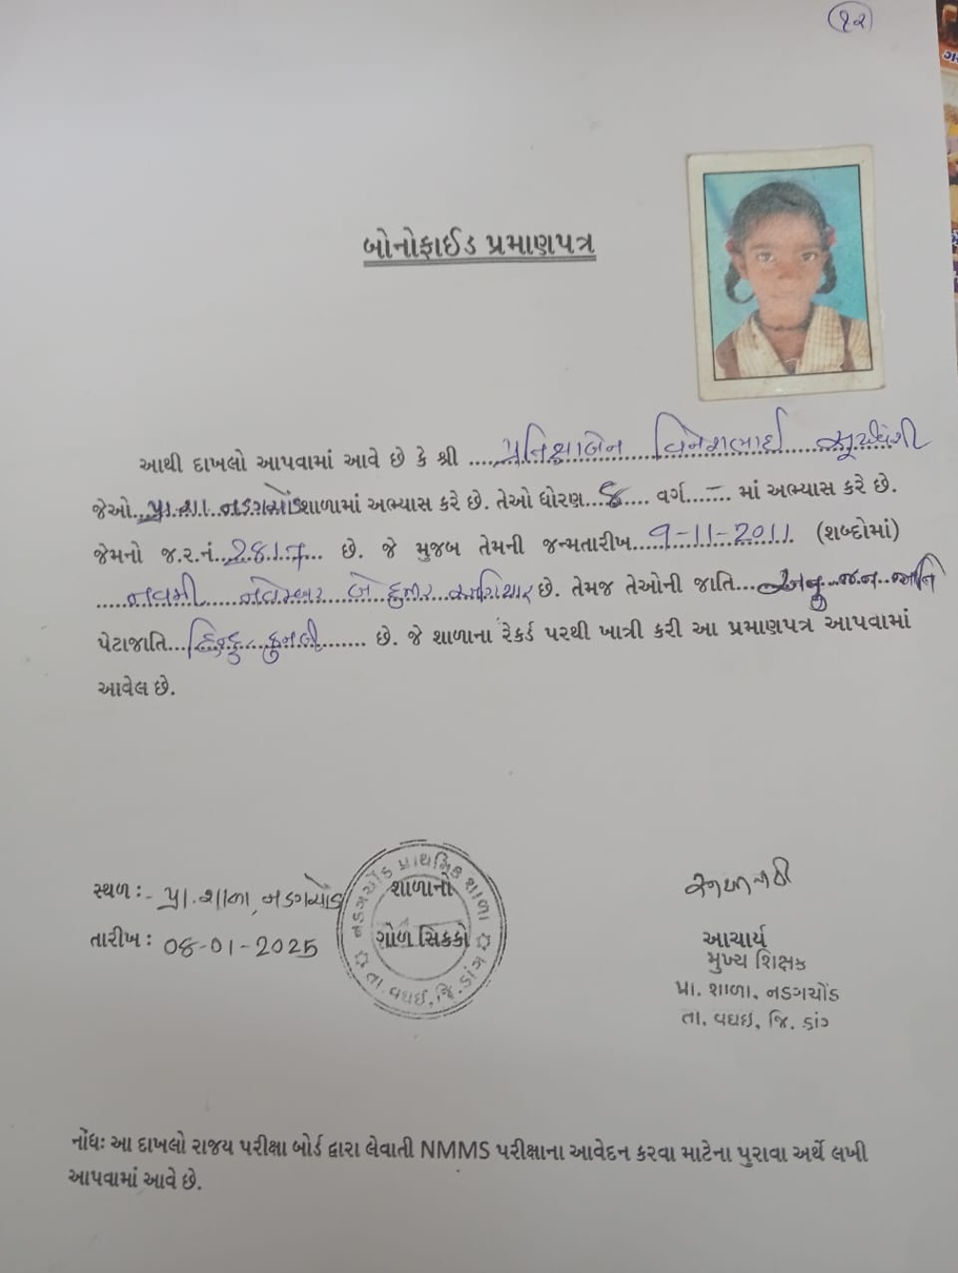 ૧૨
બોનોફાઈડ પ્રમાણપત્ર
આથી દાખલો આપવામાં આવે છે કે શ્રી ....પ્રતિક્ષાબેન વિનેશભાઈ સૂર્યવંશી
જેઓ..પ્રા.શા. નડગચોંડ શાળામાં અભ્યાસ કરે છે. તેઓ ધોરણ..8.... વર્ગ..–.. માં અભ્યાસ કરે છે.
જેમનો જ.ર.નં..2817... છે. જે મુજબ તેમની જન્મતારીખ...9-11-2011 (શબ્દોમાં)
....નવમી નવેમ્બર બે હજાર અગિયાર છે. તેમજ તેઓની જાતિ...અનુ.જન.જાતિ
પેટાજાતિ...હિન્દુ કુનબી....... છે. જે શાળાના રેકર્ડ પરથી ખાત્રી કરી આ પ્રમાણપત્ર આપવામાં
આવેલ છે.
સ્થળ :- પ્રા.શાળા, નડગચોંડ
તારીખ : 08-01-2025
નડગચોંડ પ્રાથમિક શાળા
શાળાનો
ગોળ સિક્કો
તા. વઘઈ, જિ. ડાંગ
આચાર્ય
મુખ્ય શિક્ષક
પ્રા. શાળા, નડગચોંડ
તા. વઘઇ, જિ. ડાંગ
નોંધઃ આ દાખલો રાજય પરીક્ષા બોર્ડ દ્વારા લેવાતી NMMS પરીક્ષાના આવેદન કરવા માટેના પુરાવા અર્થે લખી
આપવામાં આવે છે.